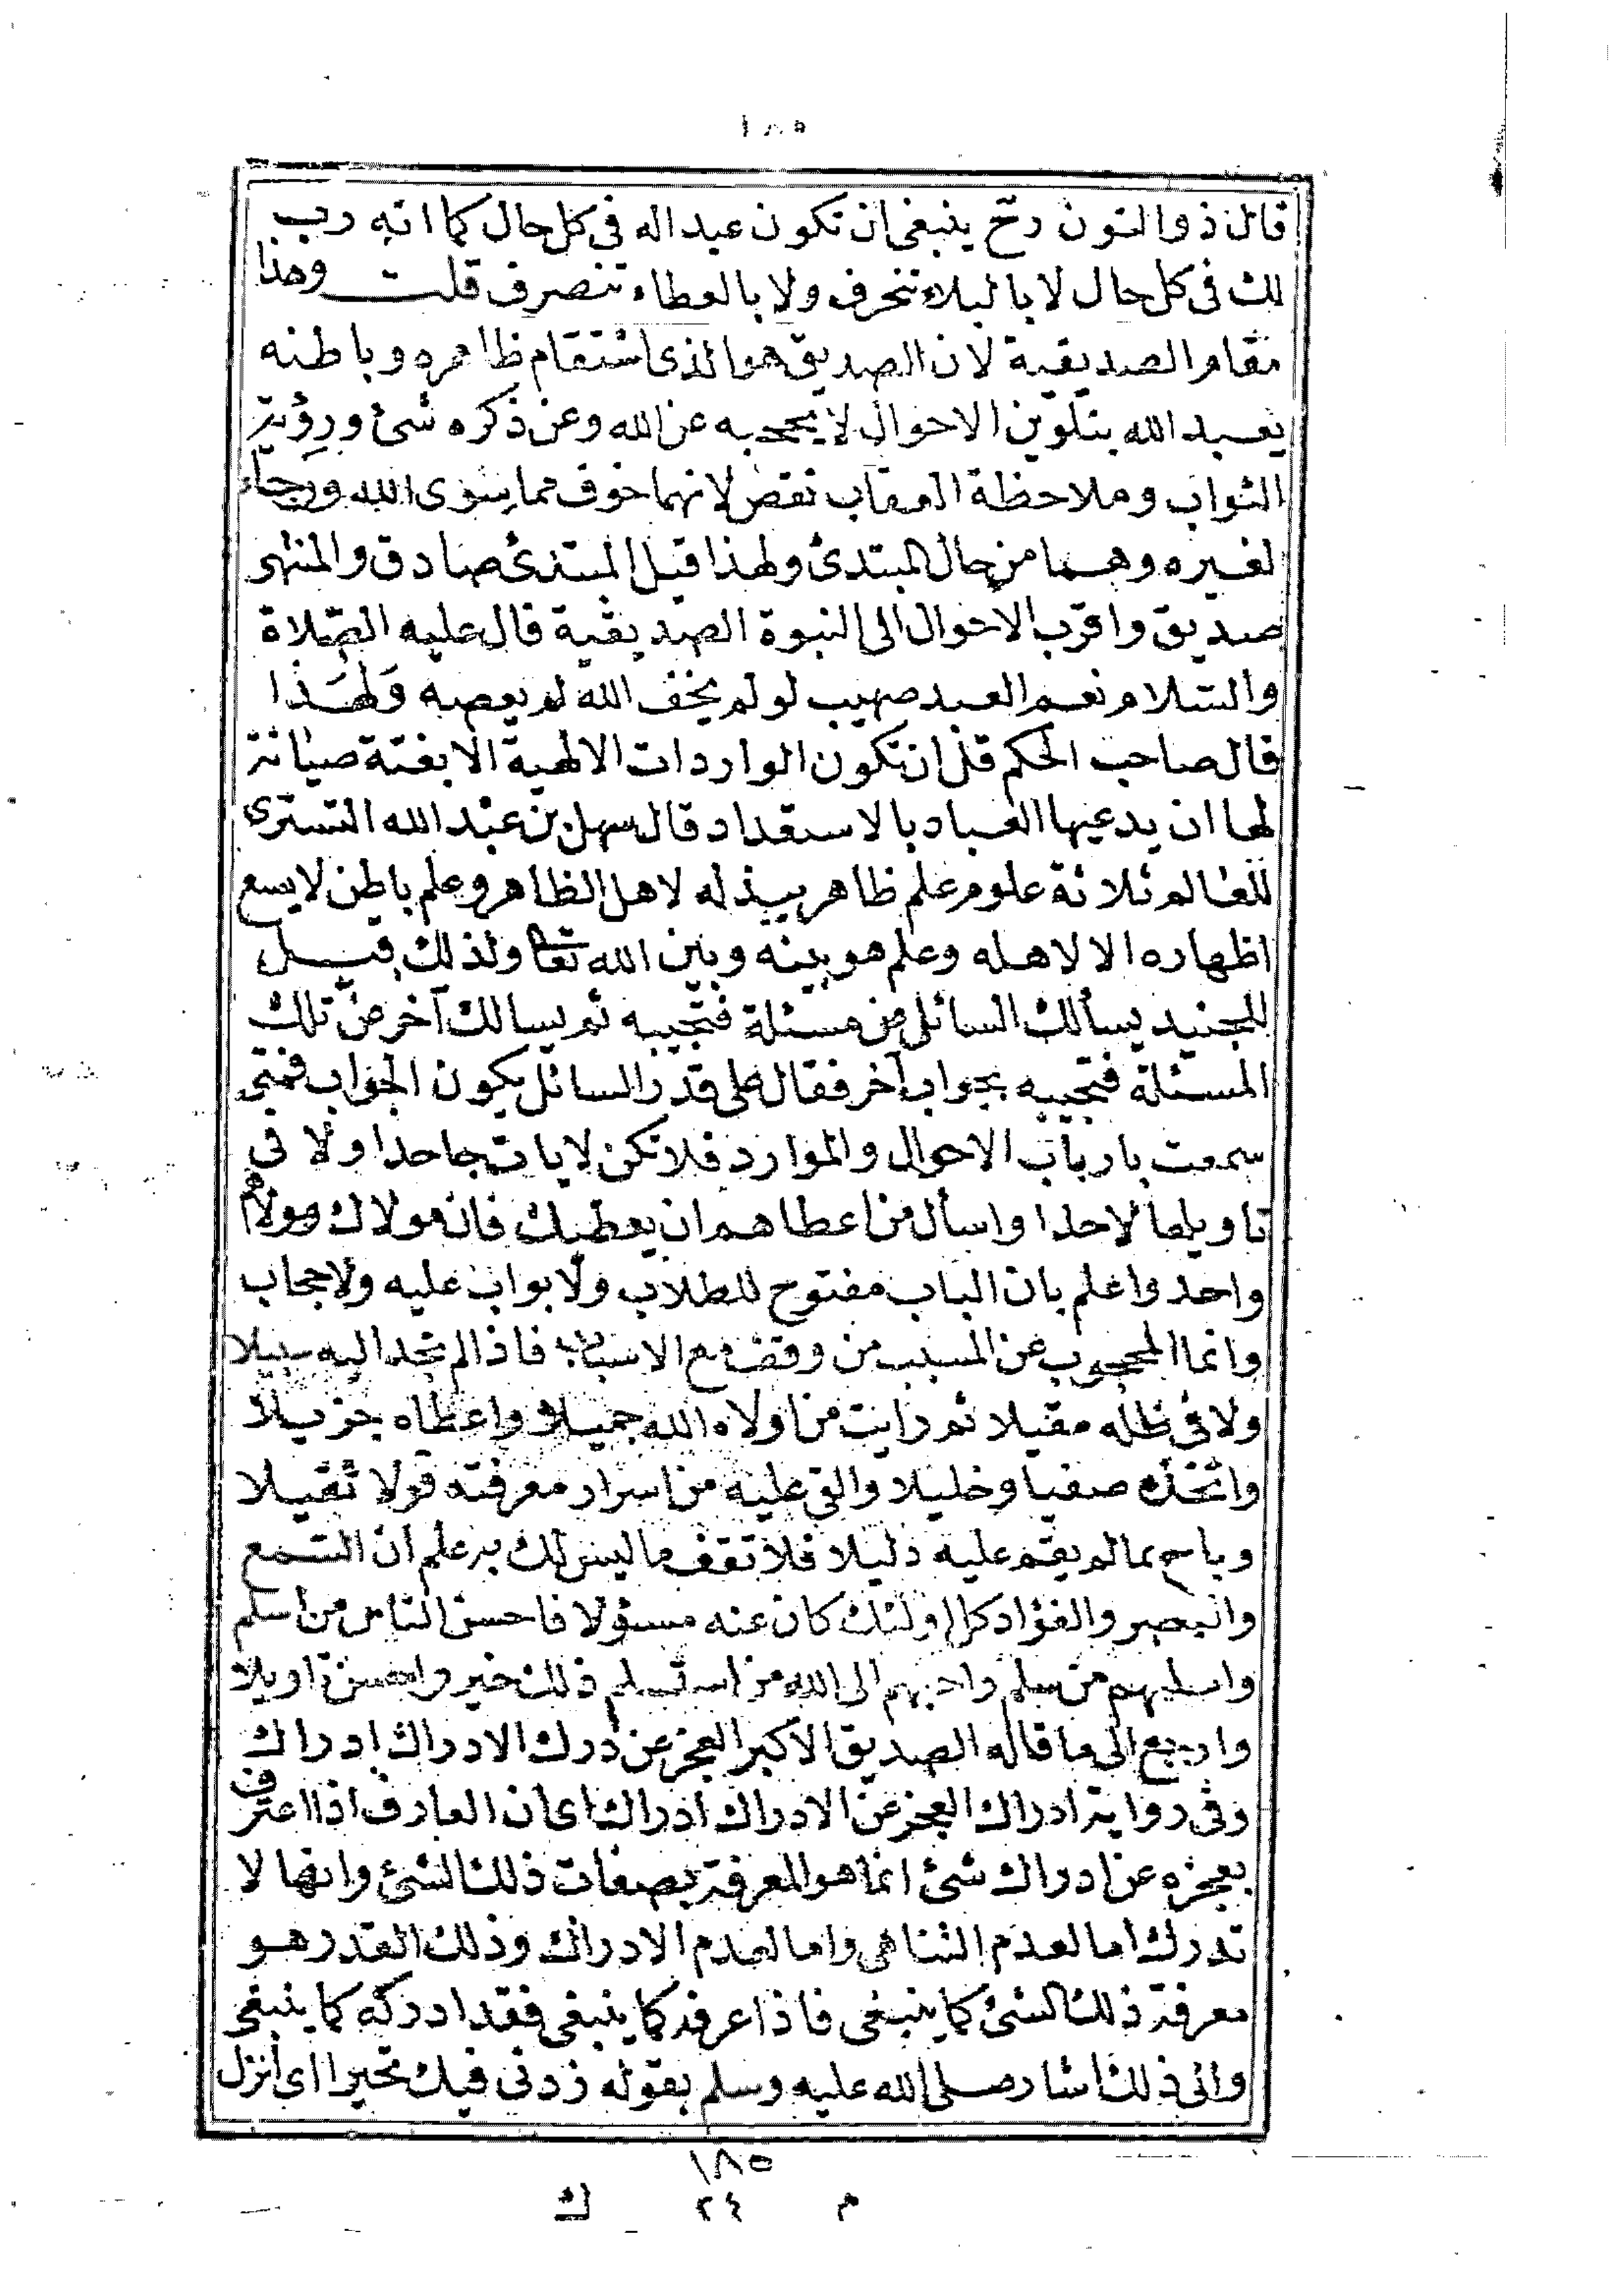 ١٨٥
قال ذو النون رح ينبغى ان تكون عبدا له فى كل حال كما انه رب
لك فى كل حال لا بالبلاء تنحرف ولا بالعطاء تنصرف قلت وهذا
مقام الصديقية لان الصديق هو الذى استقام ظاهره وباطنه
يعبد الله بتلوين الاحوال لا يحجبه عن الله وعن ذكره شئ ورؤية
الثواب وملاحظة العقاب نقص لانهما خوف مما سوى الله ورجاء
لغيره وهما من حال المبتدئ ولهذا قيل المبتدئ صادق والمنتهى
صديق واقرب الاحوال الى النبوة الصديقية قال عليه الصّلاة
والسّلام نعم العبد صهيب لو لم يخف الله لم يعصه وَلهَذا
قال صاحب الحكم قلّ ان تكون الواردات الالهية الا بغتة صيانة
لها ان يدعيها العباد بالاستعداد قال سهل بن عبد الله التسترى
للعالم ثلاثة علوم علم ظاهر يبذله لاهل الظاهر وعلم باطن لا يسع
اظهاره الا لاهله وعلم هو بينه وبين الله تعا ولذلك قيل
للجنيد يسألك السائل من مسئلة فتجيبه ثم يسالك آخر من تلك
المسئلة فتجيبه بجواب آخر فقال على قدر السائل يكون الجواب فمتى
سمعت بارباب الاحوال والموارد فلا تكن لايات جاحدا ولا فى
تاويلها لاحدا واسأل من اعطاهم ان يعطيك فان مولاك ومولاهم
واحد واعلم بان الباب مفتوح للطلاب ولا بواب عليه ولا حجاب
وانما المحجوب عن المسبب من وقف مع الاسباب فاذا لم تجد اليه سبيلا
ولا فى ظله مقيلا ثم رايت من اولاه الله جميلا واعطاه جزيلا
واتخذه صفيا وخليلا والقى عليه من اسرار معرفته قولا ثقيلا
وباح بما لم يقم عليه دليلا فلا تقف ما ليس لك به علم ان السّمع
والبصر والفؤاد كل اولئك كان عنه مسؤلا فاحسن الناس من اسلم
واسلمهم من سلم واحبهم الى الله من استسلم ذلك خير واحسن تاويلا
وارجع الى ما قاله الصديق الاكبر العجز عن درك الادراك ادراك
وفى رواية ادراك العجز عن الادراك ادراك اى ان العارف اذا اعترف
بعجزه عن ادراك شئ انما هو المعرفة بصفات ذلك الشئ وانها لا
تدرك اما لعدم التناهى واما لعدم الادراك وذلك القدر هو
معرفة ذلك الشئ كما ينبغى فاذا عرفه كما ينبغى فقد ادركه كما ينبغى
والى ذلك اشار صلى الله عليه وسلم بقوله زدنى فيك تحيرا اى انزل
١٨٥
م ٢٤ ك